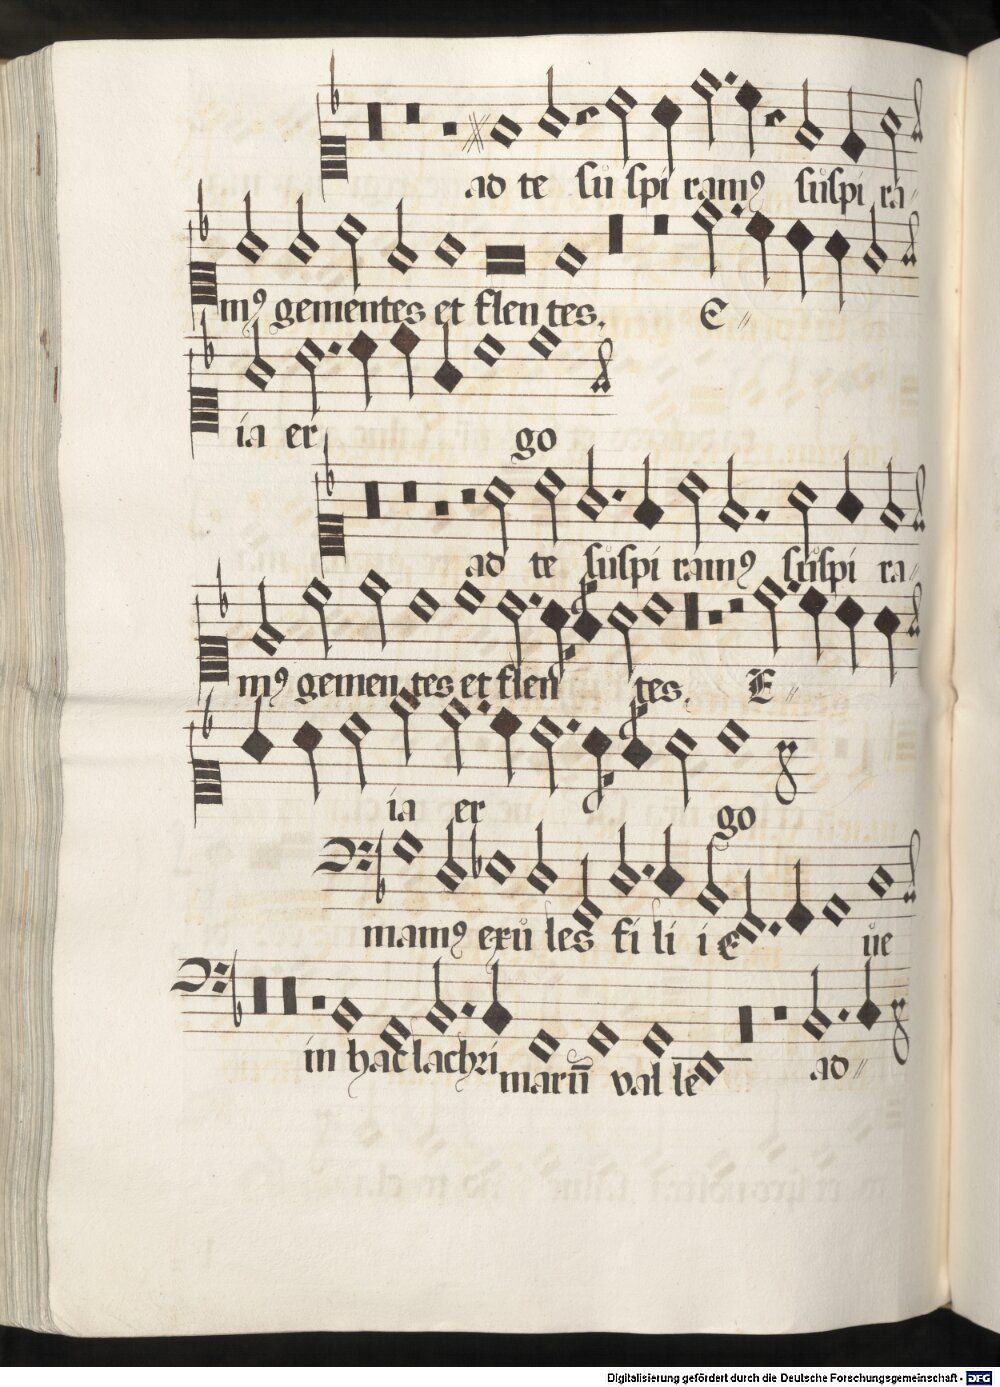 ad te su spi ramꝰ suspi ra-
mꝰ gementes et flen tes. E
ia er go
ad te suspi ramꝰ suspi ra-
mꝰ gemen tes et flen tes. E
ia er go
mamꝰ exu les fi li i E ue
in hac lachri marū val le ad
Digitalisierung gefördert durch die Deutsche Forschungsgemeinschaft - DFG